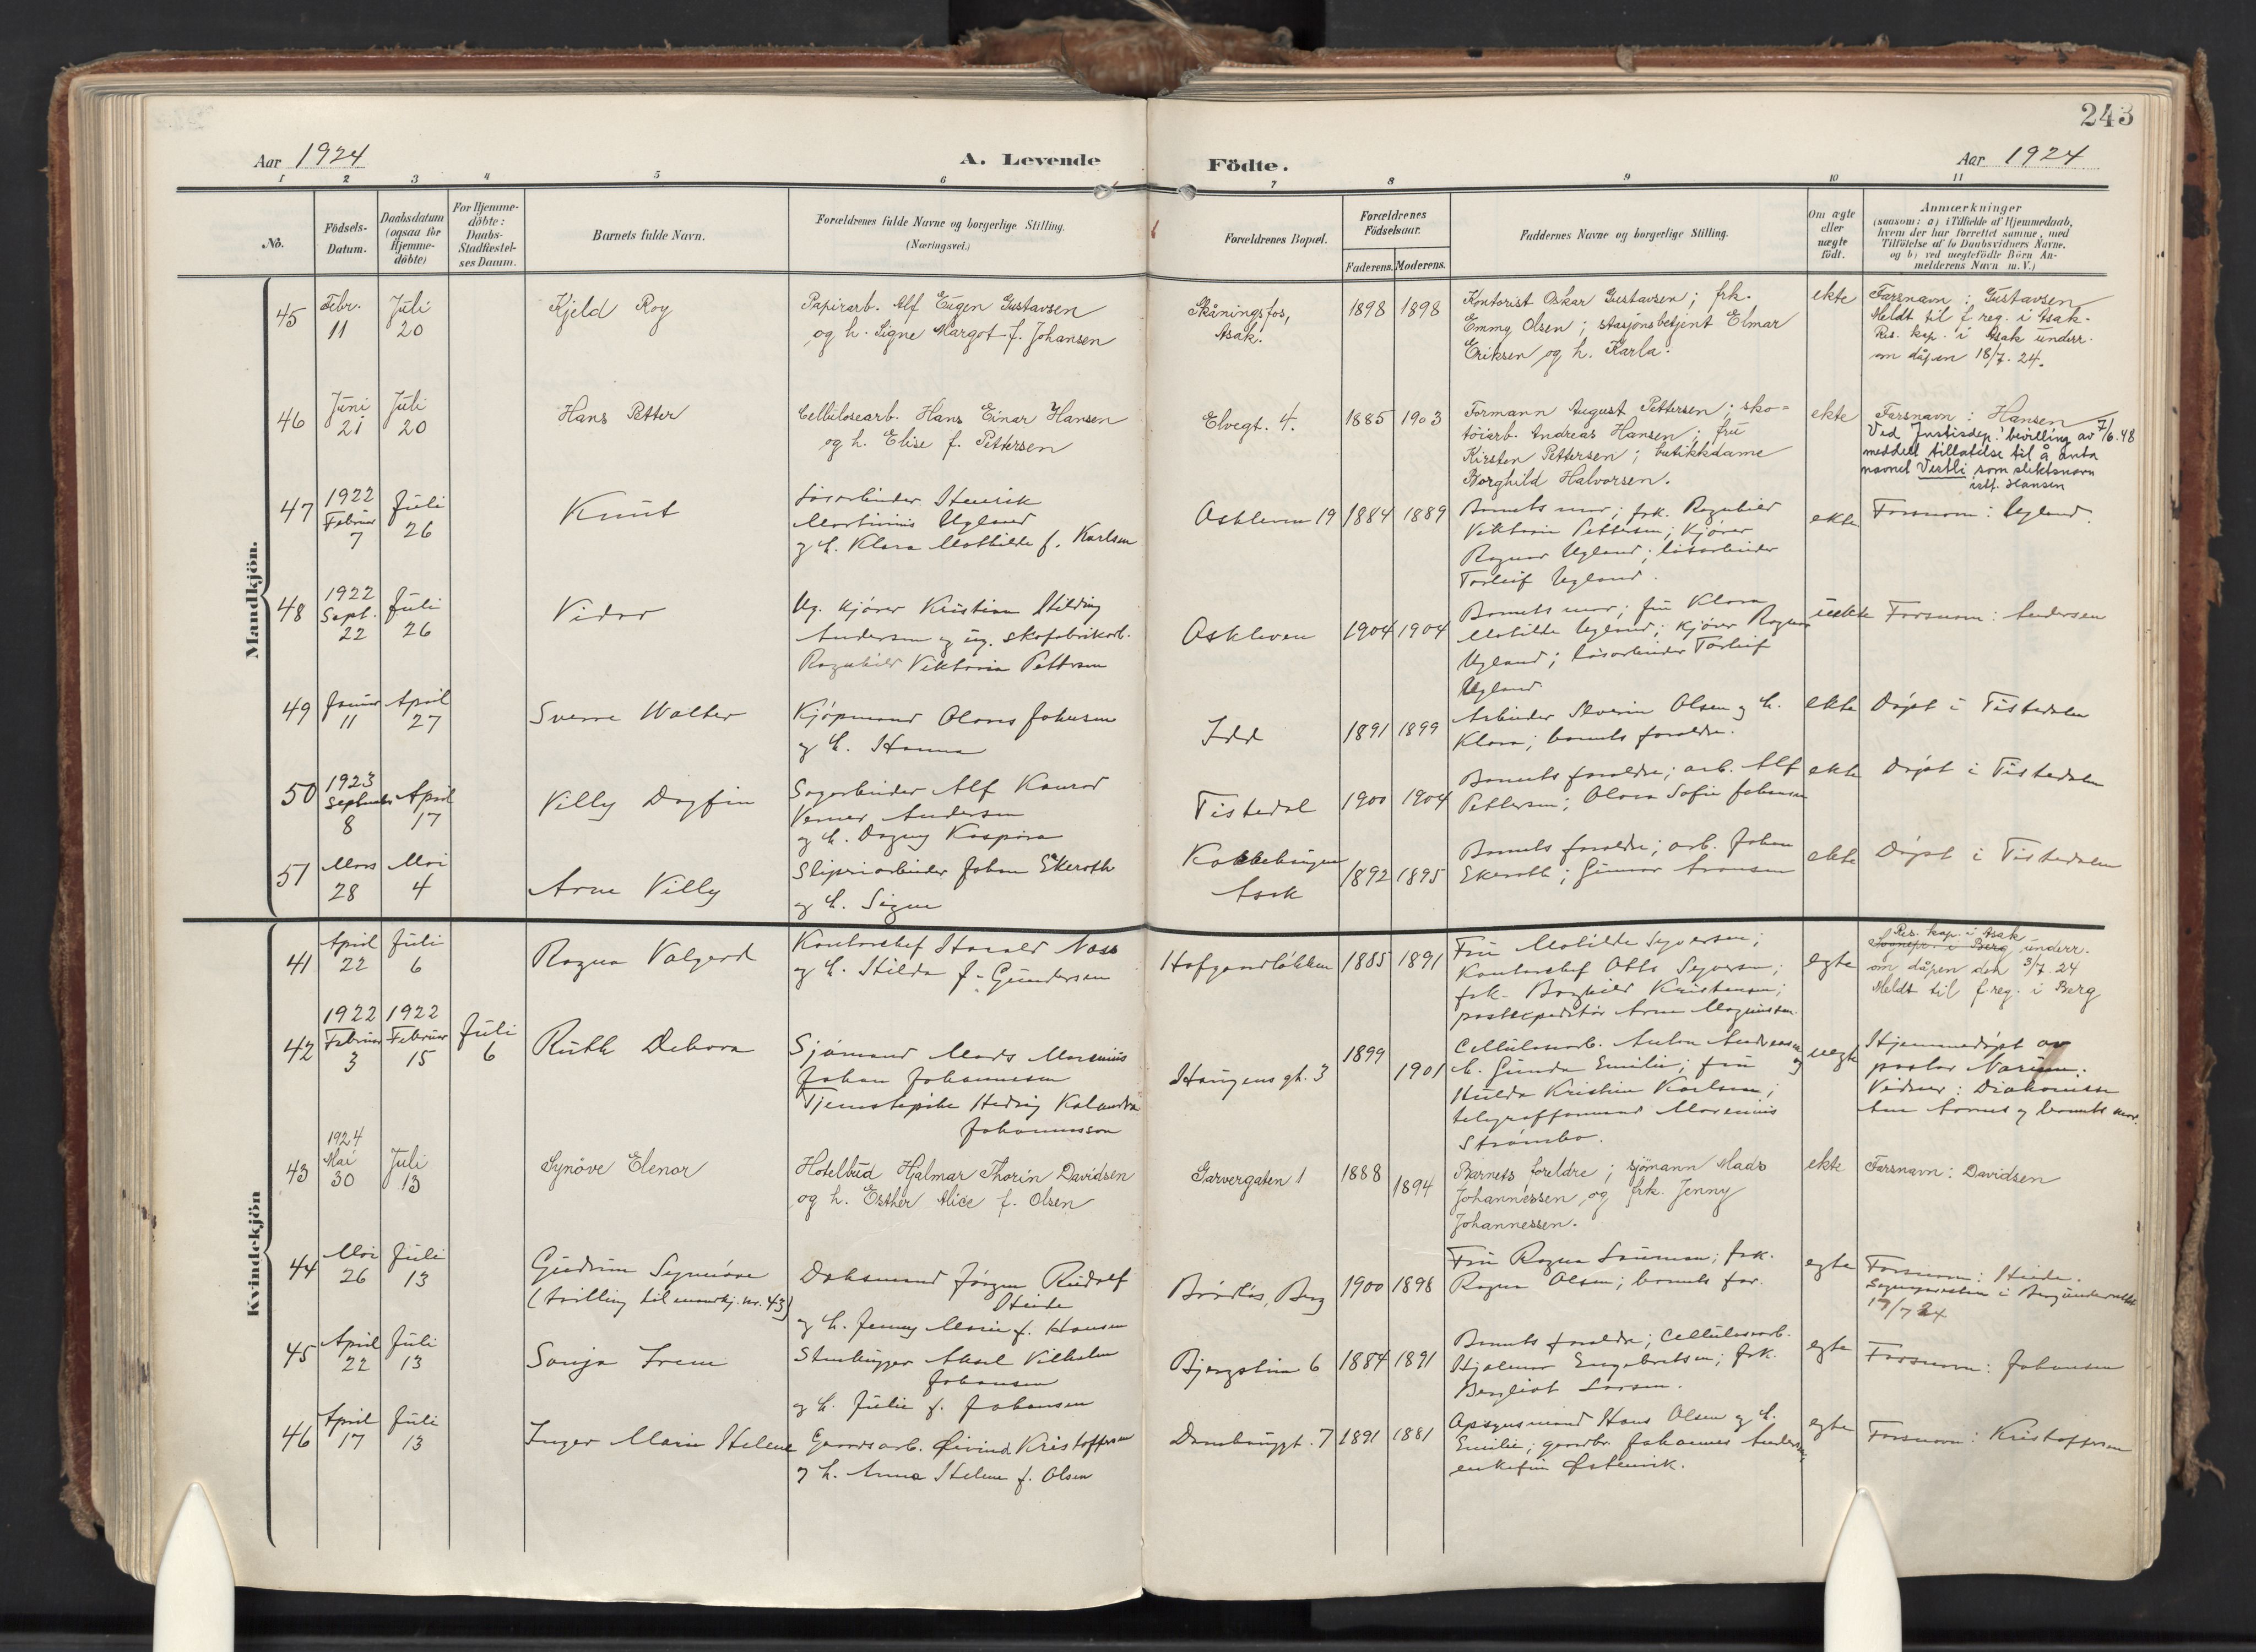 243
Aar 1924
A. Levende
Födte.
Aar 1924
1 2 3 4 5 6 7 8 9 10 11
No.
Födsels-
Datum.
Daabsdatum
(ogsaa for
Hjemme-
döbte)
For Hjemme-
döbte:
Daabs-
Stadfæstel-
ses Datum.
Barnets fulde Navn.
Forældrenes fulde Navne og borgerlige Stilling.
(Næringsvei.)
Forældrenes Bopæl.
Forældrenes
Födselsaar.
Faderens. Moderens.
Faddernes Navne og borgerlige Stilling.
Om ægte
eller
uægte
födt.
Anmærkninger
(saasom: a) i Tilfælde af Hjemmedaab,
hvem der har forrettet samme, med
Tilföielse af to Daabsvidners Navne,
og b) ved uægtefödte Börn An-
melderens Navn m. V.)
Mandkjön.
45
Febr.
11
Juli
20
Kjeld Roy
Papirarb. Alf Eugen Gustavsen
og h. Signe Margot f. Johansen
Skåningsfos,
Asak.
1898 1898
Kontorist Oskar Gustavsen; frk.
Emmy Olsen; stasjonsbetjent Elmar
Eriksen og h. Karla.
ekte
Farsnavn: Gustavsen
Meldt til f. reg. i Asak.
Res. kap. i Asak underr.
om dåpen 18/7. 24.
46
Juni
21
Juli
20
Hans Petter
Cellulosearb. Hans Einar Hansen
og h. Elise f. Pettersen
Elvegt. 4.
1885 1903
Formann August Pettersen; sko=
töiarb. Andreas Hansen; fru
Kirsten Pettersen; butikkdame
Borghild Halvorsen.
ekte
Farsnavn: Hansen
Ved Justisdep.' bevilling av 7/6.48
meddelt tillatelse til å anta
navnet Vestli som slektsnavn
istf. Hansen
47
1922
Februar
7
Juli
26
Knut
Løsarbeider Henrik
Martinius Ugland
og h. Klara Mathilde f. Karlsen
Askleven 19
1884 1889
Barnets mor; frk. Ragnhild
Viktoria Pettersen; kjører
Ragnar Ugland; løsarbeider
Torleif Ugland.
ekte
Farsnavn: Ugland.
48
1922
Sept.
22
Juli
26
Vidar
Ug. kjører Kristian Hilding
Andersen og ug. skofabrikarb.
Ragnhild Viktoria Pettersen
Askleven
1904 1904
Barnets mor; fru Klara
Matilde Ugland; kjører Ragnar
Ugland; løsarbeider Torleif
Ugland
uekte
Farsnavn: Andersen
49
Januar
11
April
27
Sverre Walter
Kjøpmand Olaves Johnsen
og h. Hanna
Idd
1891 1899
Arbeider Severin Olsen og h.
Klara; barnets foreldre.
ekte
Døpt i Tistedalen
50
1923
September
8
April
17
Villy Dagfin
Sagarbeider Alf Konrad
Verner Andersen
og h. Dagny Kaspara
Tistedal
1900 1904
Barnets foreldre; arb. Alf
Pettersen; Olava Sofie Johansen
ekte
Døpt i Tistedalen
51
Mars
28
Mai
4
Arne Villy
Sliperiarbeider Johan Ekeroth
og h. Signe
Asak
1892 1895
Barnets foreldre; arb. Johan
Ekeroth; Gunnar Aronsen
ekte
Døpt i Tistedalen
Kvindekjön
41
April
22
Juli
6
Ragna Valgerd
Kontorchef Harald Næss
og h. Hilda f. Gundersen
Hofgaardløkken
1885 1891
Fru Matilde Syversen;
Kontorchef Otto Syversen;
frk. Kristensen;
postexpeditør Arne Magnussen.
egte
Res. kap. i Asak
Sognepr. i Berg underr.
om dåpen den 3/7. 24
Meldt til f. reg. i Berg
42
1922
Februar
3
1922
Februar
15
Juli
6
Ruth Debora
Sjømand Mads Marenius
Johan Johannessen
Tjenestepike Hedvig Kalandra
Johannesson
Haugens gt. 3
1899
1901
Cellulosearb. Anton Andreasen og
h. Gunda Emilie; fru
Hulda Kristine Karlsen;
telegrafformand Marenius
Strømbo.
uegte
Hjemmedøpt av
pastor
Vidner: Diakonisse
og barnets mor.
43
1924
Mai
30
Juli
13
Synöve Elenor
Hotelbud Hjalmar Thorin Davidsen
og h. Esther Alice f. Olsen
Garvergaten 1
1888
1894
Barnets foreldre; sjömann Mads
Johannessen, og frk. Jenny
Johannessen.
ekte
Farsnavn: Davidsen
44
Mai
26
Juli
13
Gudrun Synnöve
(tvilling til mandkj. nr. 43)
Doksmand Jörgen Rudolf
Heide
og h. Jenny Marie f. Hansen
Brödløs, Berg
1900 1898
Fru Ragna; frk.
Ragna Olsen; barnets far.
egte
Farsnavn: Heide.
Sognepresten i Berg underrettet
17/7 24
45
April
22
Juli
13
Sonja Irene
Stenhugger Aksel Vilhelm
Johansen
og h. Julie f. Johansen
Bjergstien 6
1884 1891
Barnets foreldre; Cellulosearb.
Hjalmar Engebretsen; frk.
Bergliot Larsen.
egte
Farsnavn: Johansen
46
April
17
Juli
13
Inger Marie Helene
Gaardsarb. Øivind Kristoffersen
og h. Anna Helene f. Olsen
Damhaugt. 7
1891 1881
Opsynsmand Hans Olsen og h.
Emilie; gaardbr. Johannes Andersen,
enkefru Østenvik.
egte
Farsnavn: Kristoffersen